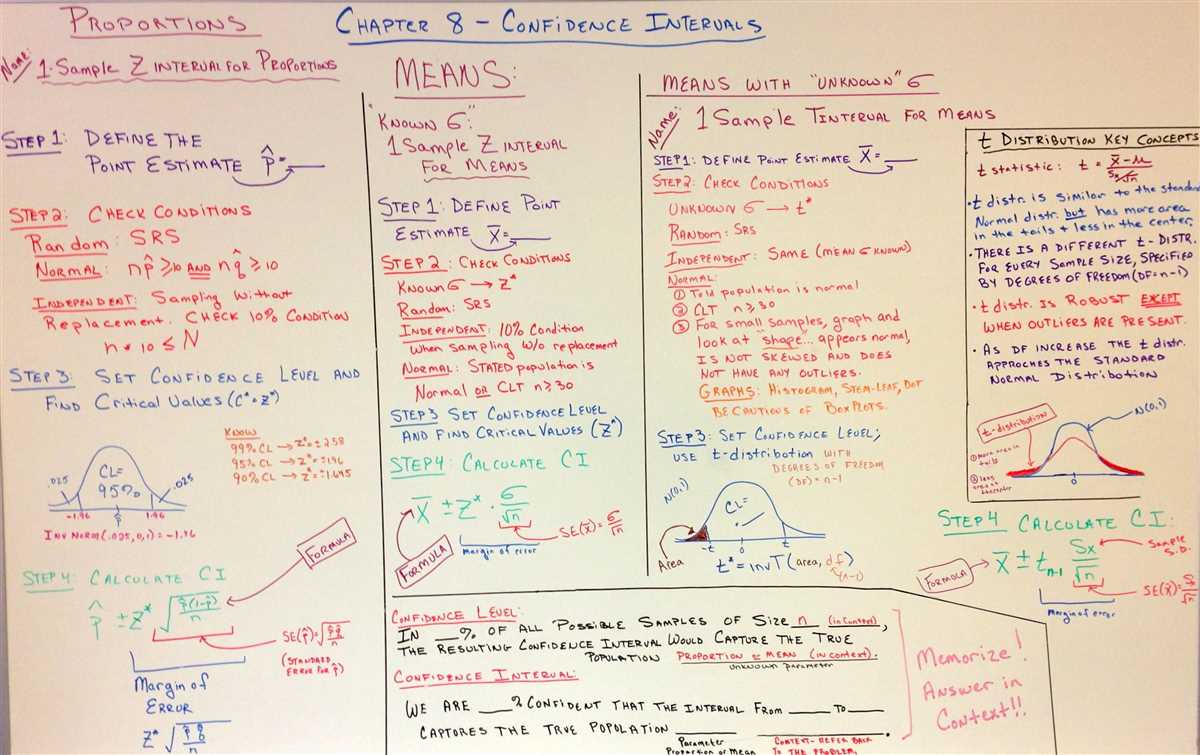 PROPORTIONS
CHAPTER 8 - CONFIDENCE INTERVALS
Name:
1-Sample Z INTERVAL FOR PROPORTIONS
STEP 1: DEFINE THE
POINT ESTIMATE p̂ = ___
STEP 2: CHECK CONDITIONS
Random: SRS
NORMAL: np̂ ≥10 AND nq̂ ≥ 10
INDEPENDENT: Sampling Without
Replacement. CHECK 10% CONDITION
n * 10 ≤ N
STEP 3: SET CONFIDENCE LEVEL AND
FIND Critical VALUES (C* = Z*)
KNOW
99% CL → Z* = ± 2.58
95% CL → Z* = ± 1.96
90% CL → Z* = ± 1.645
.025
CL=
95%
.025
-1.96
p̂
1.96
INV NORM (.025,0,1) = -1.96
FORMULA
STEP 4: CALCULATE CI
p̂ ± Z* √(p̂(1-p̂)/n)
SE(p̂)=√(p̂q̂/n)
(STANDARD
ERROR FOR p̂)
Margin of
ERROR
Z* √(p̂q̂/n)
MEANS:
"KNOWN σ":
1 Sample Z INTERVAL
FOR MEANS
STEP 1: DEFINE POINT
ESTIMATE x̄ = ___
STEP 2: CHECK CONDITIONS
KNOWN σ → Z*
Random: SRS
INDEPENDENT: 10% CONDITION
when SAMPLING W/O replacement
NORMAL: STATED population is
Normal OR CLT n ≥ 30
STEP 3 SET CONFIDENCE LEVEL
AND FIND CRITICAL VALUES (Z*)
STEP 4: CALCULATE CI
x̄ ± Z* · σ/√n
SE(x̄)=σ/√n
margin of error
FORMULA
MEANS WITH "UNKNOWN" σ
Name:
1 Sample T INTERVAL FOR MEANS
STEP 1: DEFINE POINT ESTIMATE x̄ = ___
STEP 2: CHECK CONDITIONS
UNKNOWN σ → t*
RANDOM: SRS
INDEPENDENT: SAME (MEAN σ KNOWN)
NORMAL:
① Told population is normal
② CLT n ≥ 30
③ For small samples, graph and
look at "shape"... appears normal,
IS NOT SKEWED AND DOES
NOT HAVE ANY OUTLIERS.
GRAPHS: HISTOGRAM, STEM-LEAF, DOT
BE CAUTIOUS OF BOXPLOTS.
STEP 3: SET CONFIDENCE LEVEL;
USE t-distribution WITH
DEGREES OF FREEDOM
(DF) = n-1
N(0,1)
CL= ___
Area
-t
0
t
t* = invT (area, df)
(n-1)
t DISTRIBUTION KEY CONCEPTS
t statistic: t = (x̄ - μ)/(Sx/√n)
• t distr. is similar to the standard
Normal distr. but has more area
in the tails + less in the center.
• THERE IS A DIFFERENT t-DISTR.
FOR EVERY SAMPLE SIZE, SPECIFIED
BY DEGREES OF FREEDOM (DF=n-1)
• t distr. IS ROBUST EXCEPT
WHEN OUTLIERS ARE PRESENT.
• AS DF INCREASE THE t distr.
APPROCHES THE STANDARD
NORMAL DISTRIBUTION
t-distribution
N(0,1)
① more area in
tails
② less
area at
the center
0
STEP 4 CALCULATE CI:
FORMULA
x̄ ± tn-1 Sx/√n
Sample
S.D.
SE(x̄)=S/√n
Margin of error
CONFIDENCE LEVEL:
IN ___% OF ALL POSSIBLE SAMPLES OF SIZE n (in context),
THE RESULTING CONFIDENCE INTERVAL WOULD CAPTURE THE TRUE
POPULATION PROPORTION or MEAN (in context).
unknown parameter
CONFIDENCE INTERVAL:
WE ARE ___% CONFIDENT THAT THE INTERVAL FROM ___ TO ___
CAPTURES THE TRUE POPULATION ___ ___
Parameter
Proportion or Mean
CONTEXT - REFER BACK
TO THE PROBLEM.
Memorize!
Answer in
Context!!